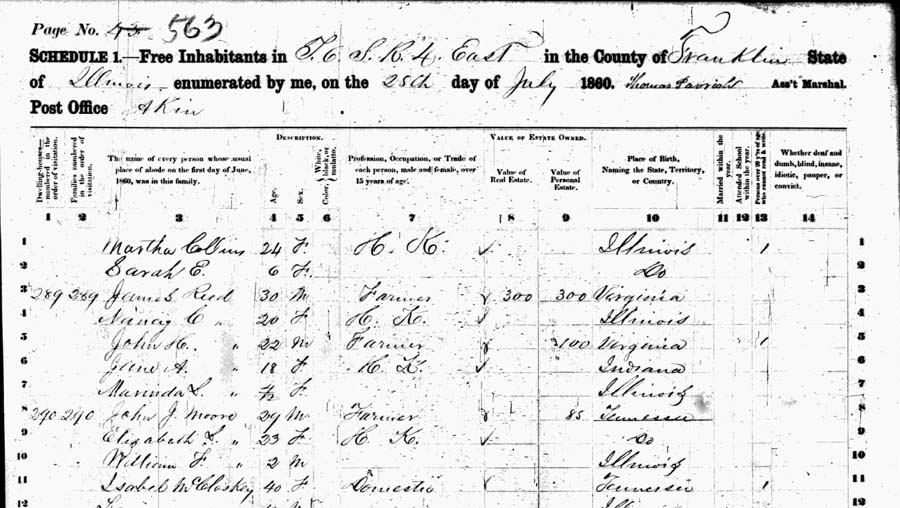 Page No. 43 563
SCHEDULE 1.—Free Inhabitants in T. 6 S. R. 4 East in the County of Franklin State
of Illinois enumerated by me, on the 25th day of July 1860. Thomas Ass't Marshal.
Post Office Akin
Dwelling-houses—numbered in the order of visitation.
Families numbered in the order of visitation.
The name of every person whose usual place of abode on the first day of June, 1860, was in this family.
DESCRIPTION.
Age.
Sex.
Color, White, black, or mulatto.
Profession, Occupation, or Trade of each person, male and female, over 15 years of age.
VALUE OF ESTATE OWNED.
Value of Real Estate.
Value of Personal Estate.
Place of Birth, Naming the State, Territory, or Country.
Married within the year.
Attended School within the year.
Persons over 20 y'rs of age who cannot read & write.
Whether deaf and dumb, blind, insane, idiotic, pauper, or convict.
1 2 3 4 5 6 7 8 9 10 11 12 13 14
1 Martha Collins 24 F. H. K. Illinois 1 1
2 Sarah E. 6 F. Do 2
3 289 289 James Reed 30 M Farmer 300 300 Virginia 3
4 Nancy C " 20 F H. K. Illinois 4
5 John H. " 22 M Farmer 100 Virginia 1 5
6 Jane A. " 18 F H. K. Indiana 6
7 Marinda L. " F. Illinois 7
8 290 290 John J. Moore 29 M Farmer 85 Tennessee 8
9 Elizabeth L. " 23 F H K. Do 9
10 William F. " 2 M Illinois 10
11 Isabel McCloskey 40 F Domestic Tennessee 1 11
12 12